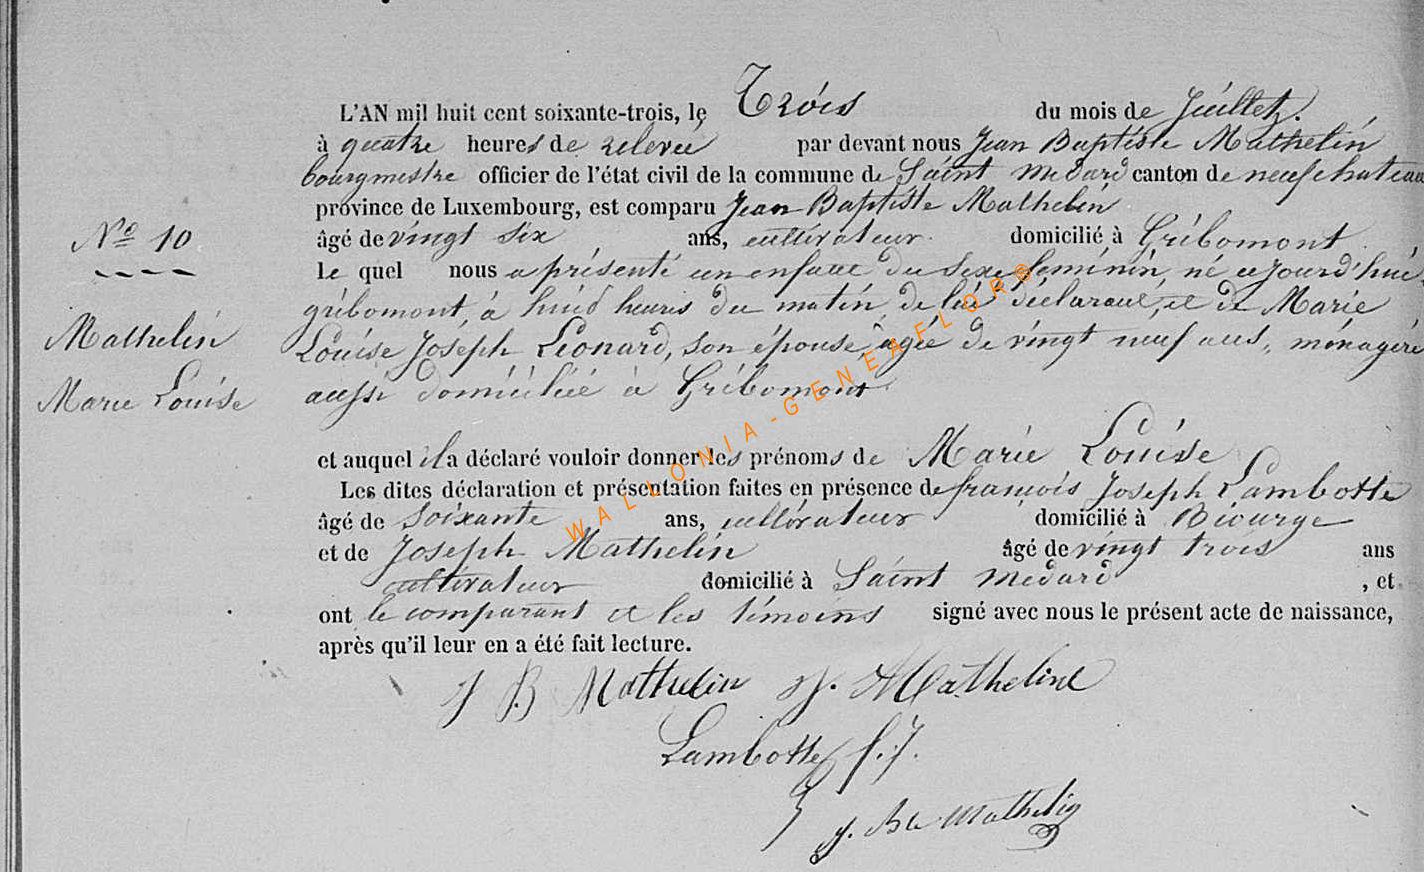 L'AN mil huit cent soixante-trois, le Trois du mois de Juillet.
à quatre heures de relevée par devant nous Jean Baptiste Mathelin
bourgmestre officier de l'état civil de la commune de Saint Médard canton de neufchateau
province de Luxembourg, est comparu Jean Baptiste Mathelin
N° 10
âgé de vingt six ans, cultivateur domicilié à Gribomont
le quel nous a présenté un enfant du sexe féminin, né cejourd'hui
gribomont, à huit heures du matin, de lui déclarant, et de Marie
Mathelin
Louise Joseph Léonard, son épouse, agée de vingt neuf ans, ménagère
Marie Louise
aussi domiciliée à Gribomont
et auquel il a déclaré vouloir donner les prénoms de Marie Louise
Les dites déclaration et présentation faites en présence de françois Joseph Lambotte
âgé de soixante ans, cultivateur domicilié à Biourge
et de Joseph Mathelin âgé de vingt trois ans
cultivateur domicilié à Saint Médard , et
ont le comparant et les témoins signé avec nous le présent acte de naissance,
après qu'il leur en a été fait lecture.
J B Mathelin J. Matheline
Lambotte f. J.
J. Bte Mathelin
WALLONIA-GENEAFLORE